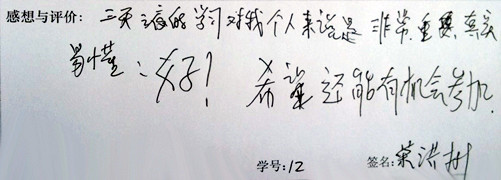 感想与评价: 三天之(?)的学习对我个人来说是 非常重要, 真实
易懂:好! 希望还能有机会参加.
学号:12 签名: